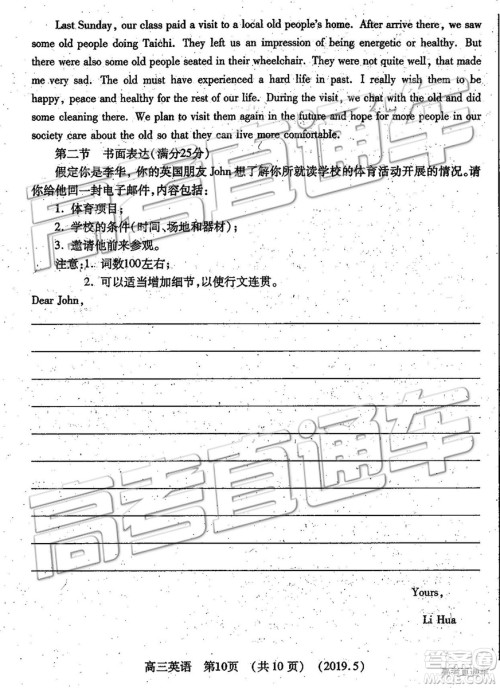 Last Sunday, our class paid a visit to a local old people's home. After arrive there, we saw
some old people doing Taichi. They left us an impression of being energetic or healthy. But
there were also some old people seated in their wheelchair. They were not quite well, that made
me very sad. The old must have experienced a hard life in past. I really wish them to be
happy, peace and healthy for the rest of our life. During the visit, we chat with the old and did
some cleaning there. We plan to visit them again in the future and hope for more people in our
society care about the old so that they can live more comfortable.
第二节 书面表达(满分25分)
假定你是李华，你的英国朋友John想了解你所就读学校的体育活动开展的情况。请
你给他回一封电子邮件，内容包括：
1. 体育项目；
2. 学校的条件(时间、场地和器材)；
3. 邀请他前来参观。
注意：1. 词数100左右；
2. 可以适当增加细节，以使行文连贯。
Dear John,
高考直通车
高考直通车
Yours,
Li Hua
高三英语 第10页 (共10页) (2019.5)